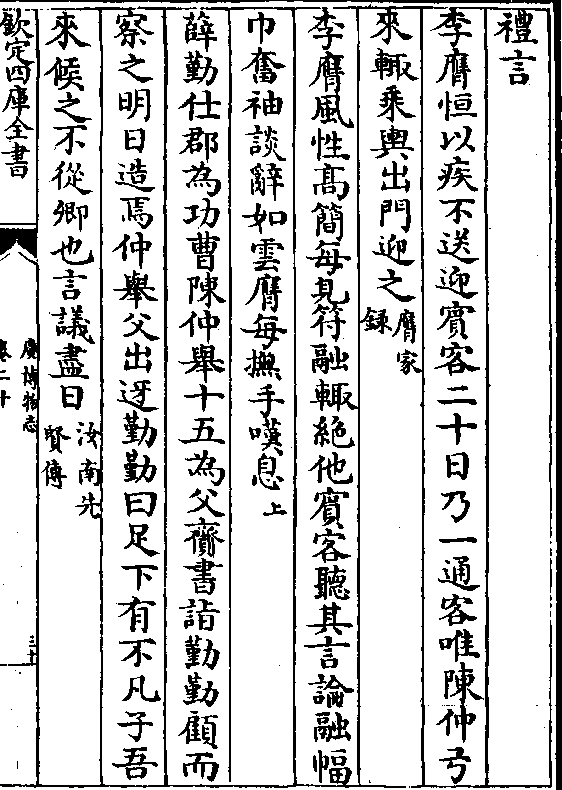 禮言
李膺恒以疾不送迎賓客二十日乃一通客唯陳仲弓
來輙乘輿出門迎之膺家
録
李膺風性髙簡每見符融輙絶他賓客聽其言論融幅
巾奮袖談辭如雲膺每撫手嘆息上
薛勤仕郡為功曹陳仲舉十五為父齎書詣勤勤顧而
察之明日造焉仲舉父出迓勤勤曰足下有不凡子吾
來候之不從卿也言議盡日汝南先
賢傳
欽定四庫全書
廣博物志
卷二十
三十